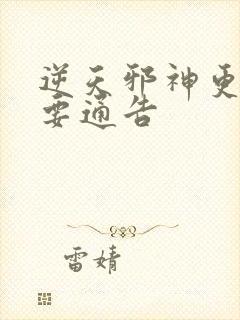 逆天邪神更
要通告
雷婧